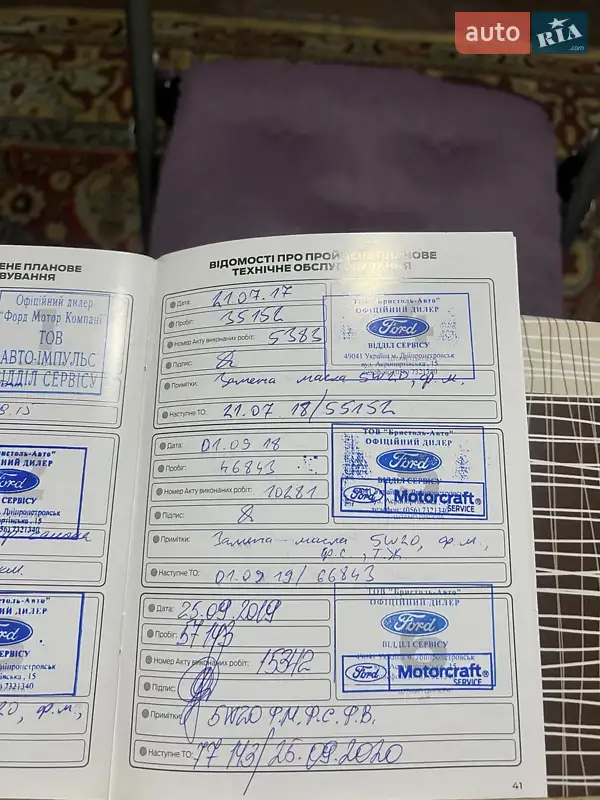 auto RIA .com
ЕНЕ ПЛАНОВЕ
ВУВАННЯ
Офіційний дилер
"Форд Мотор Компані"
ТОВ
АВТО-ІМПУЛЬС
ВІДДІЛ СЕРВІСУ
8.15
"Бристоль-Авто"
ІЙНИЙ ДИЛЕР
СЕРВІСУ
Дніпропетровськ
15
(056) 7321340
км.
"Бристоль-Авто"
ІЙНИЙ ДИЛЕР
15
) 7321340
20, ф.м.,
ВІДОМОСТІ ПРО ПРОЙДЕНЕ ПЛАНОВЕ
ТЕХНІЧНЕ ОБСЛУГОВУВАННЯ
Дата: 21.07.17
Пробіг: 35152
Номер Акту виконаних робіт: 5383
Підпис:
Примітки: Замена масла 5W20, ф.м.
Наступне ТО: 21.07.18/55152
ТОВ "Бристоль-Авто"
ОФІЦІЙНИЙ ДИЛЕР
Ford
ВІДДІЛ СЕРВІСУ
49041 Україна м. Дніпропетровськ
Дата: 01.09 18
Пробіг: 46843
Номер Акту виконаних робіт: 10281
Підпис:
Примітки: Замена масла 5W20, ф.м.,
ф.с., т.ж.
Наступне ТО: 01.09 19/66843
ТОВ "Бристоль-Авто"
ОФІЦІЙНИЙ ДИЛЕР
Ford
ВІДДІЛ СЕРВІСУ
Ford Motorcraft®
SERVICE
телефон: (056) 7321340
Дата: 25.09.2019
Пробіг: 57143
Номер Акту виконаних робіт: 15342
Підпис:
Примітки: 5W20 Ф.М. Ф.С. Ф.В.
Наступне ТО: 77 143/25.09.2020
ТОВ "Бристоль-Авто"
ОФІЦІЙНИЙ ДИЛЕР
Ford
ВІДДІЛ СЕРВІСУ
Ford Motorcraft®
SERVICE
41